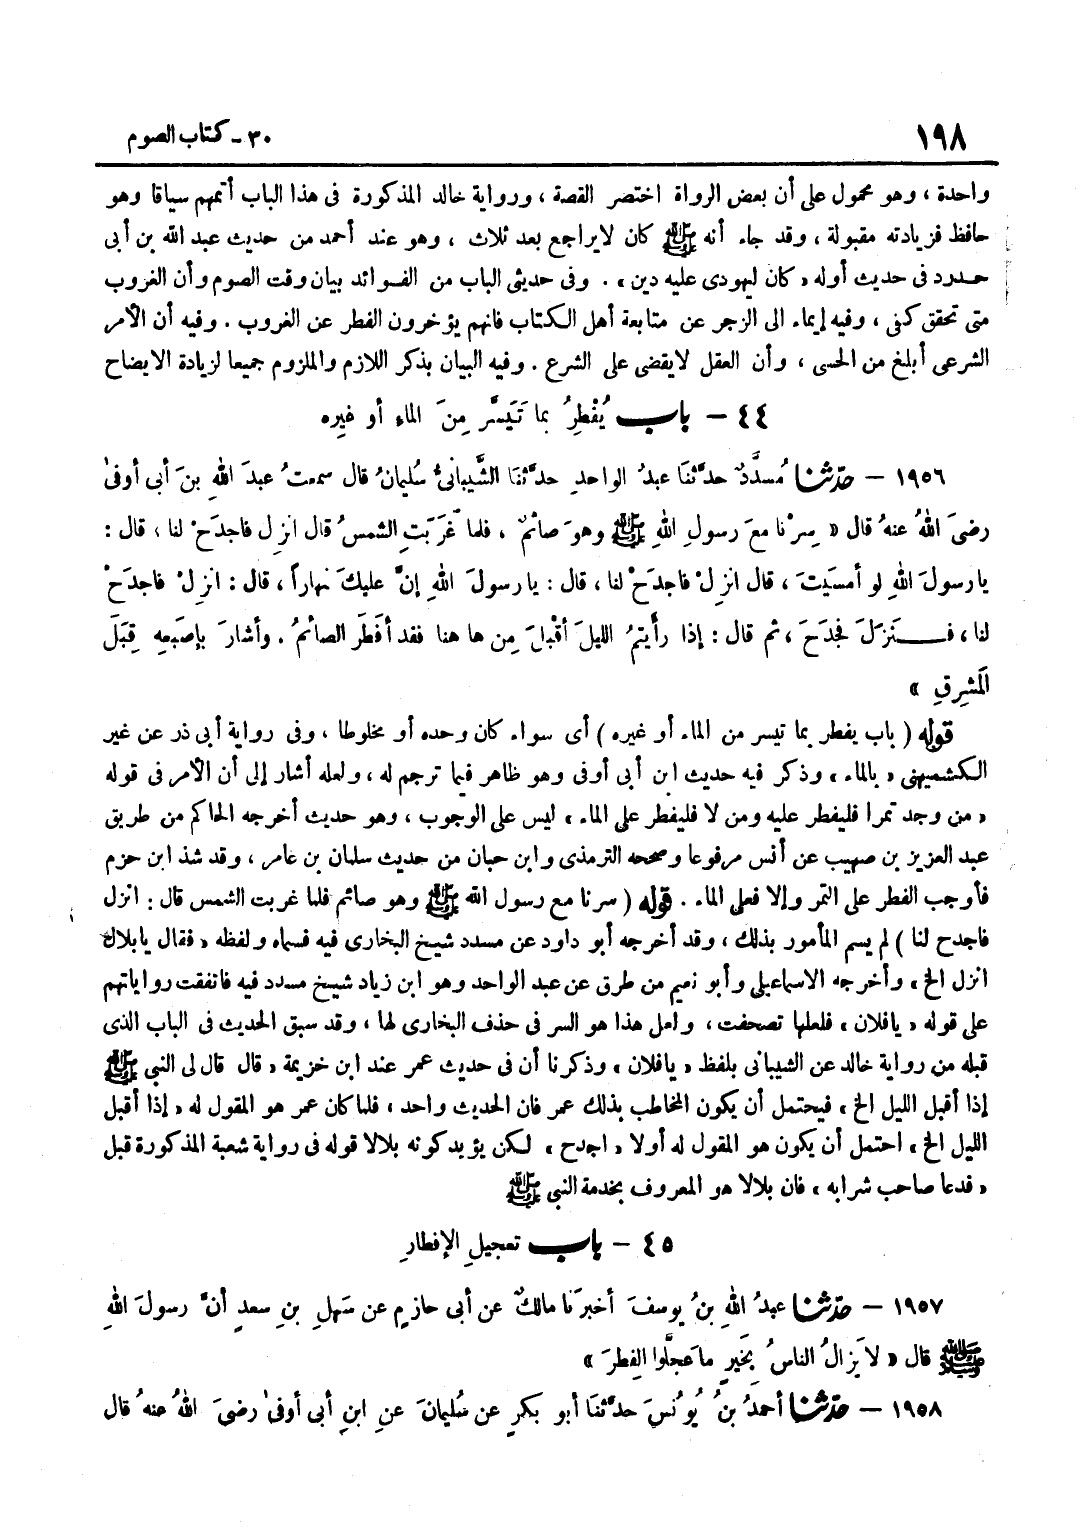 ١٩٨
٣٠ - كتاب الصوم
واحدة ، وهو محمول على أن بعض الرواة اختصر القصة ، ورواية خالد المذكورة فى هذا الباب أتمهم سياقا وهو
حافظ فزيادته مقبولة ، وقد جاء أنه ﷺ كان لايراجع بعد ثلاث ، وهو عند أحمد من حديث عبد الله بن أبى
حدرد فى حديث أوله « كان ليهودى عليه دين » . وفى حديثى الباب من الفوائد بيان وقت الصوم وأن الغروب
متى تحقق كفى ، وفيه إيماء الى الزجر عن متابعة أهل الكتاب فانهم يؤخرون الفطر عن الغروب . وفيه أن الأمر
الشرعى أبلغ من الحسى ، وأن العقل لايقضى على الشرع . وفيه البيان بذكر اللازم والملزوم جميعا لزيادة الايضاح
٤٤ - باب يُفْطِرُ بما تَيَسَّر مِنَ الماءِ أو غيرِه
١٩٥٦ - حدّثنا مُسدَّدٌ حدَّثنَا عبدُ الواحدِ حدَّثنَا الشَّيبانىُّ سُليمانُ قال سمعتُ عبدَ اللهِ بنَ أبى أوفىٰ
رضىَ اللهُ عنهُ قال « سِرْنا معَ رسولِ اللهِ ﷺ وهوَ صائمٌ ، فلما غَرَبَتِ الشمسُ قال انزِل فاجدَحْ لنا ، قال :
يا رسولَ اللهِ لو أمسَيتَ ، قال انزِلْ فاجدَحْ لنا ، قال : يا رسولَ اللهِ إنَّ عليكَ نهاراً ، قال : انزِلْ فاجدَحْ
لنا ، فـنَزَلَ فجدَحَ ، ثم قال : إذا رأيتمُ الليلَ أقْبلَ مِن ها هنا فقد أفطَرَ الصائمُ . وأشارَ بإصبَعِهِ قِبَلَ
المَشرِقِ »
قوله ( باب يفطر بما تيسر من الماء أو غيره ) أى سواء كان وحده أو مخلوطا ، وفى رواية أبى ذر عن غير
الكشميهنى « بالماء » وذكر فيه حديث ابن أبى أوفى وهو ظاهر فيما ترجم له ، ولعله أشار إلى أن الأمر فى قوله
« من وجد تمرا فليفطر عليه ومن لا فليفطر على الماء » ليس على الوجوب ، وهو حديث أخرجه الحاكم من طريق
عبد العزيز بن صهيب عن أنس مرفوعا وصححه الترمذى وابن حبان من حديث سلمان بن عامر ، وقد شذ ابن حزم
فأوجب الفطر على التمر وإلا فعلى الماء . قوله ( سرنا مع رسول الله ﷺ وهو صائم فلما غربت الشمس قال : انزل
فاجدح لنا ) لم يسم المأمور بذلك ، وقد أخرجه أبو داود عن مسدد شيخ البخارى فيه فسماه ولفظه « فقال يابلال
انزل الخ » وأخرجه الاسماعيلى وأبو نعيم من طرق عن عبد الواحد وهو ابن زياد شيخ مسدد فيه فاتفقت رواياتهم
على قوله « يافلان » فلعلها تصحفت ، ولعل هذا هو السر فى حذف البخارى لها ، وقد سبق الحديث فى الباب الذى
قبله من رواية خالد عن الشيبانى بلفظ « يافلان » وذكرنا أن فى حديث عمر عند ابن خزيمة « قال قال لى النبى ﷺ
إذا أقبل الليل الخ » فيحتمل أن يكون المخاطب بذلك عمر فان الحديث واحد ، فلما كان عمر هو المقول له « إذا أقبل
الليل الخ » احتمل أن يكون هو المقول له أولا « اجدح » لكن يؤيد كونه بلالا قوله فى رواية شعبة المذكورة قبل
« فدعا صاحب شرابه » فان بلالا هو المعروف بخدمة النبى ﷺ
٤٥ - باب تعجيلِ الإفطارِ
١٩٥٧ - حدّثنا عبدُ اللهِ بنُ يوسفَ أخبرَنا مالكٌ عن أبى حازمٍ عن سَهلِ بنِ سعدٍ أنَّ رسولَ اللهِ
ﷺ قال « لايَزالُ الناسُ بخَيرٍ ماعَجَّلوا الفِطرَ »
١٩٥٨ - حدّثنا أحمدُ بنُ يُونُسَ حدَّثنَا أبو بكرٍ عن سُليمانَ عنِ ابنِ أبى أوفىٰ رضىَ اللهُ عنهُ قال